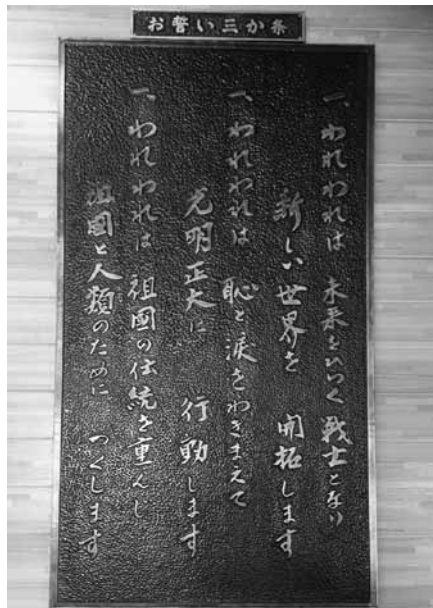 お誓い三か条
一、われわれは 未来をひらく 戦士となり
新しい世界を 開拓します
一、われわれは 恥と涙をわきまえて
光明正大に 行動します
一、われわれは 祖國の伝統を重んし
祖國と人類のために つくします